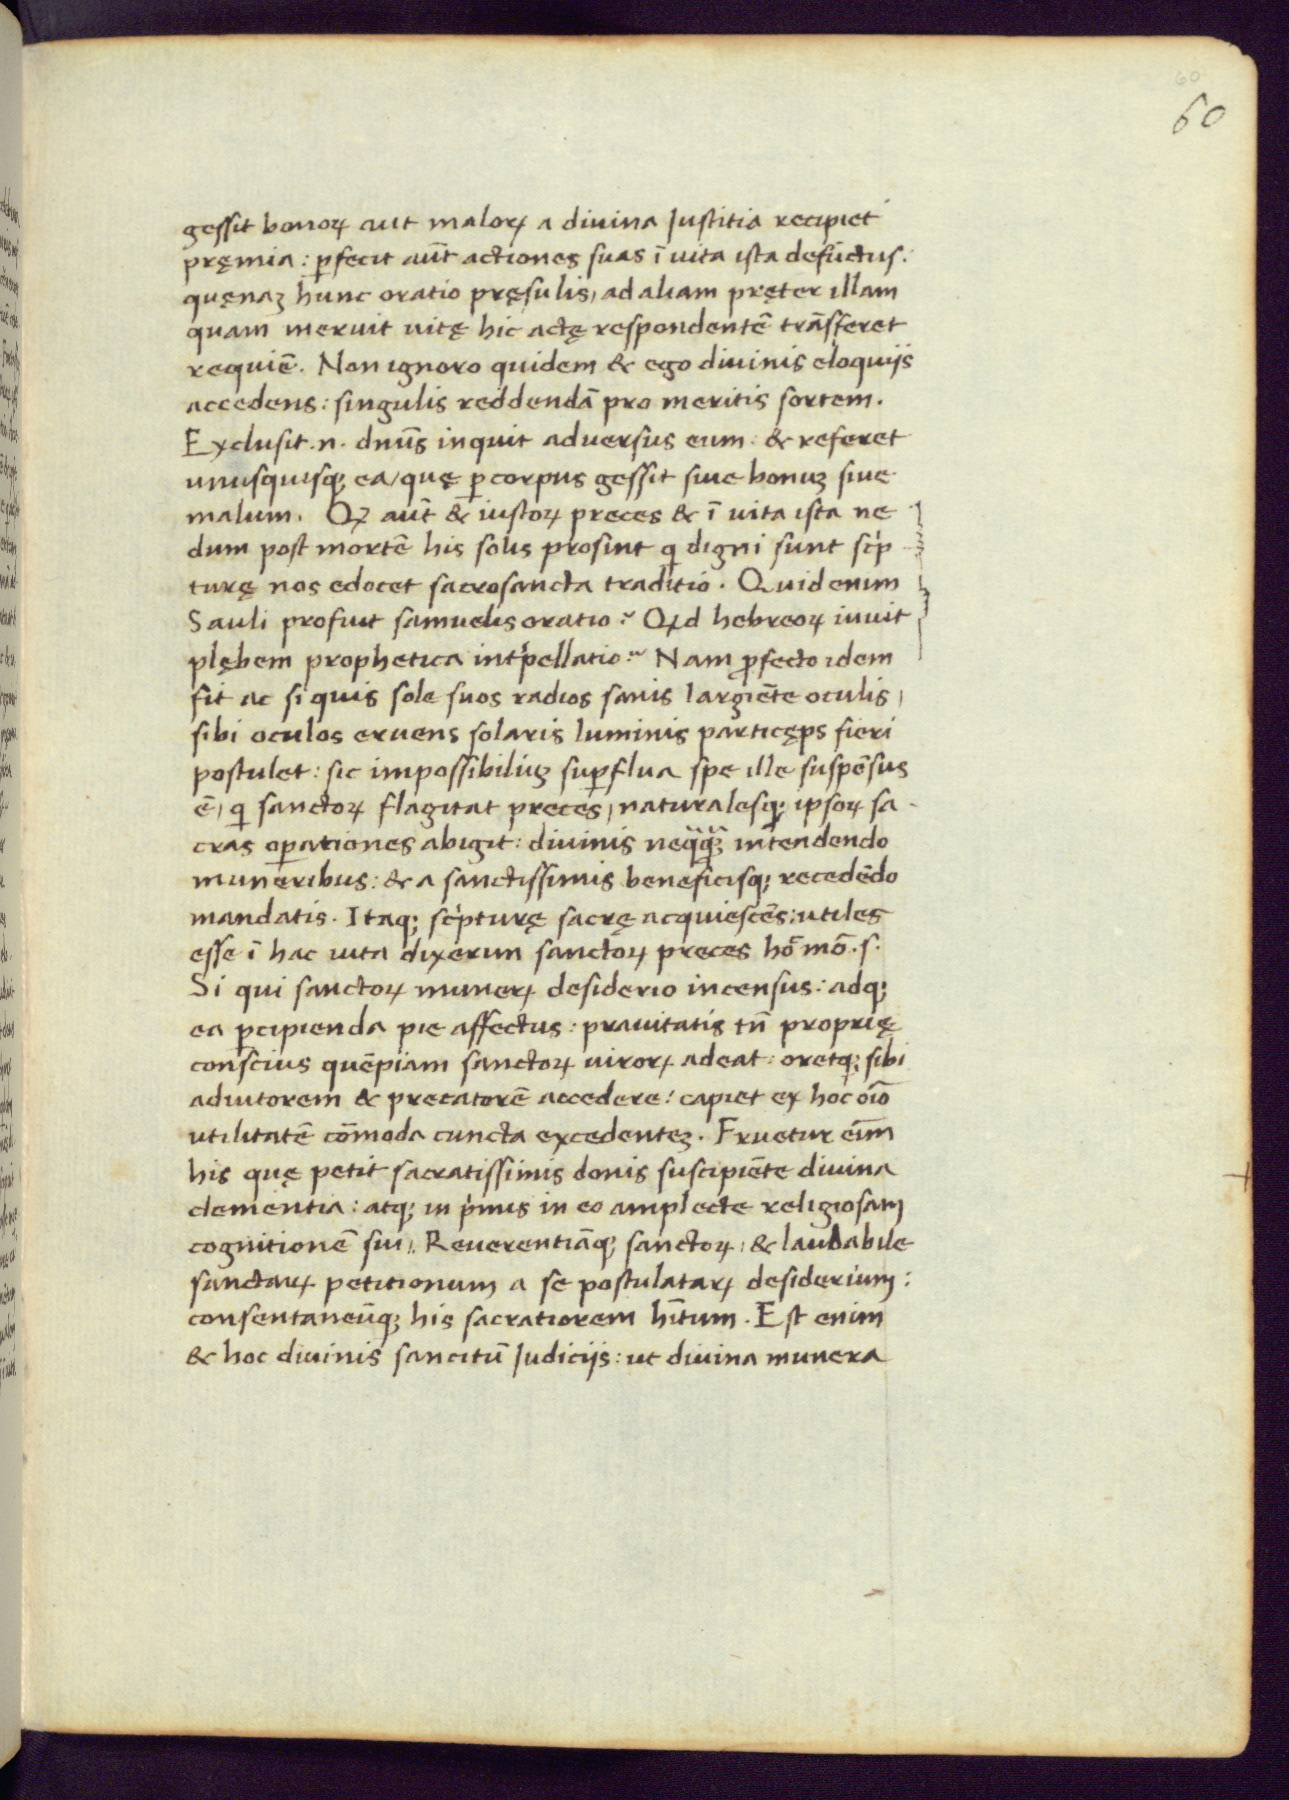 60
60
gessit bonoꝝ aut maloꝝ a diuina Justitia recipiet
pręmia : ꝑfecit aūt actiones suas ī uita ista defūctus.
quęnaꝫ hunc oratio pręsulis, ad aliam pręter illam
quam meruit uitę hic actę respondentē trāsferet
requiē. Non ignoro quidem & ego diuinis eloquijs
accedens : singulis reddendā pro meritis sortem.
Exclusit .n. dnūs inquit aduersus eum : & referet
unusquisqꝫ ea, quę ꝑ corpus gessit siue bonuꝫ siue
malum. Qꝫ aūt & iustoꝝ preces & ī uita ista ne
dum post mortē his solis prosint q̇ digni sunt scṙp
turę nos edocet sacrosancta traditio. Quid enim
Sauli profuit samuelis oratio? Qd hebreoꝝ iuuit
plębem prophetica intṗellatio? Nam ꝓfecto idem
fit ac si quis sole suos radios sanis largiēte oculis,
sibi oculos eruens solaris luminis particęps fieri
postulet : sic impossibiliuꝫ suꝑflua spe ille suspēsus
ē, q̇ sanctoꝝ flagitat preces, naturalesqꝫ ipsoꝝ sa-
cras oꝑationes abigit : diuinis neq̄q̄ꝫ intendendo
muneribus : & a sanctissimis beneficisqꝫ recedēdo
mandatis. Itaqꝫ scṙpturę sacrę acquiescēs : utiles
esse ī hac uita dixerim sanctoꝝ preces hō mō .s.
Si qui sanctoꝝ muneꝝ desiderio incensus : adqꝫ
ea ꝑcipienda pie affectus : prauitatis tn̄ proprię
conscius quēpiam sanctoꝝ uiroꝝ adeat : oretqꝫ sibi
adiutorem & precatorē accedere : capiet ex hoc oīo
utilitatē cōmoda cuncta excedenteꝫ. Fruetur eīm
his quę petit sacratissimis donis suscipiēte diuina
clementia : atqꝫ in ṗmis in eo amplecte religiosam
cognitionē sui, Reuerentiāqꝫ sanctoꝝ, & laudabile
sanctaꝝ petitionum a se postulataꝝ desiderium :
consentaneūqꝫ his sacratiorem hītum. Est enim
& hoc diuinis sancitū Judicijs : ut diuina munera